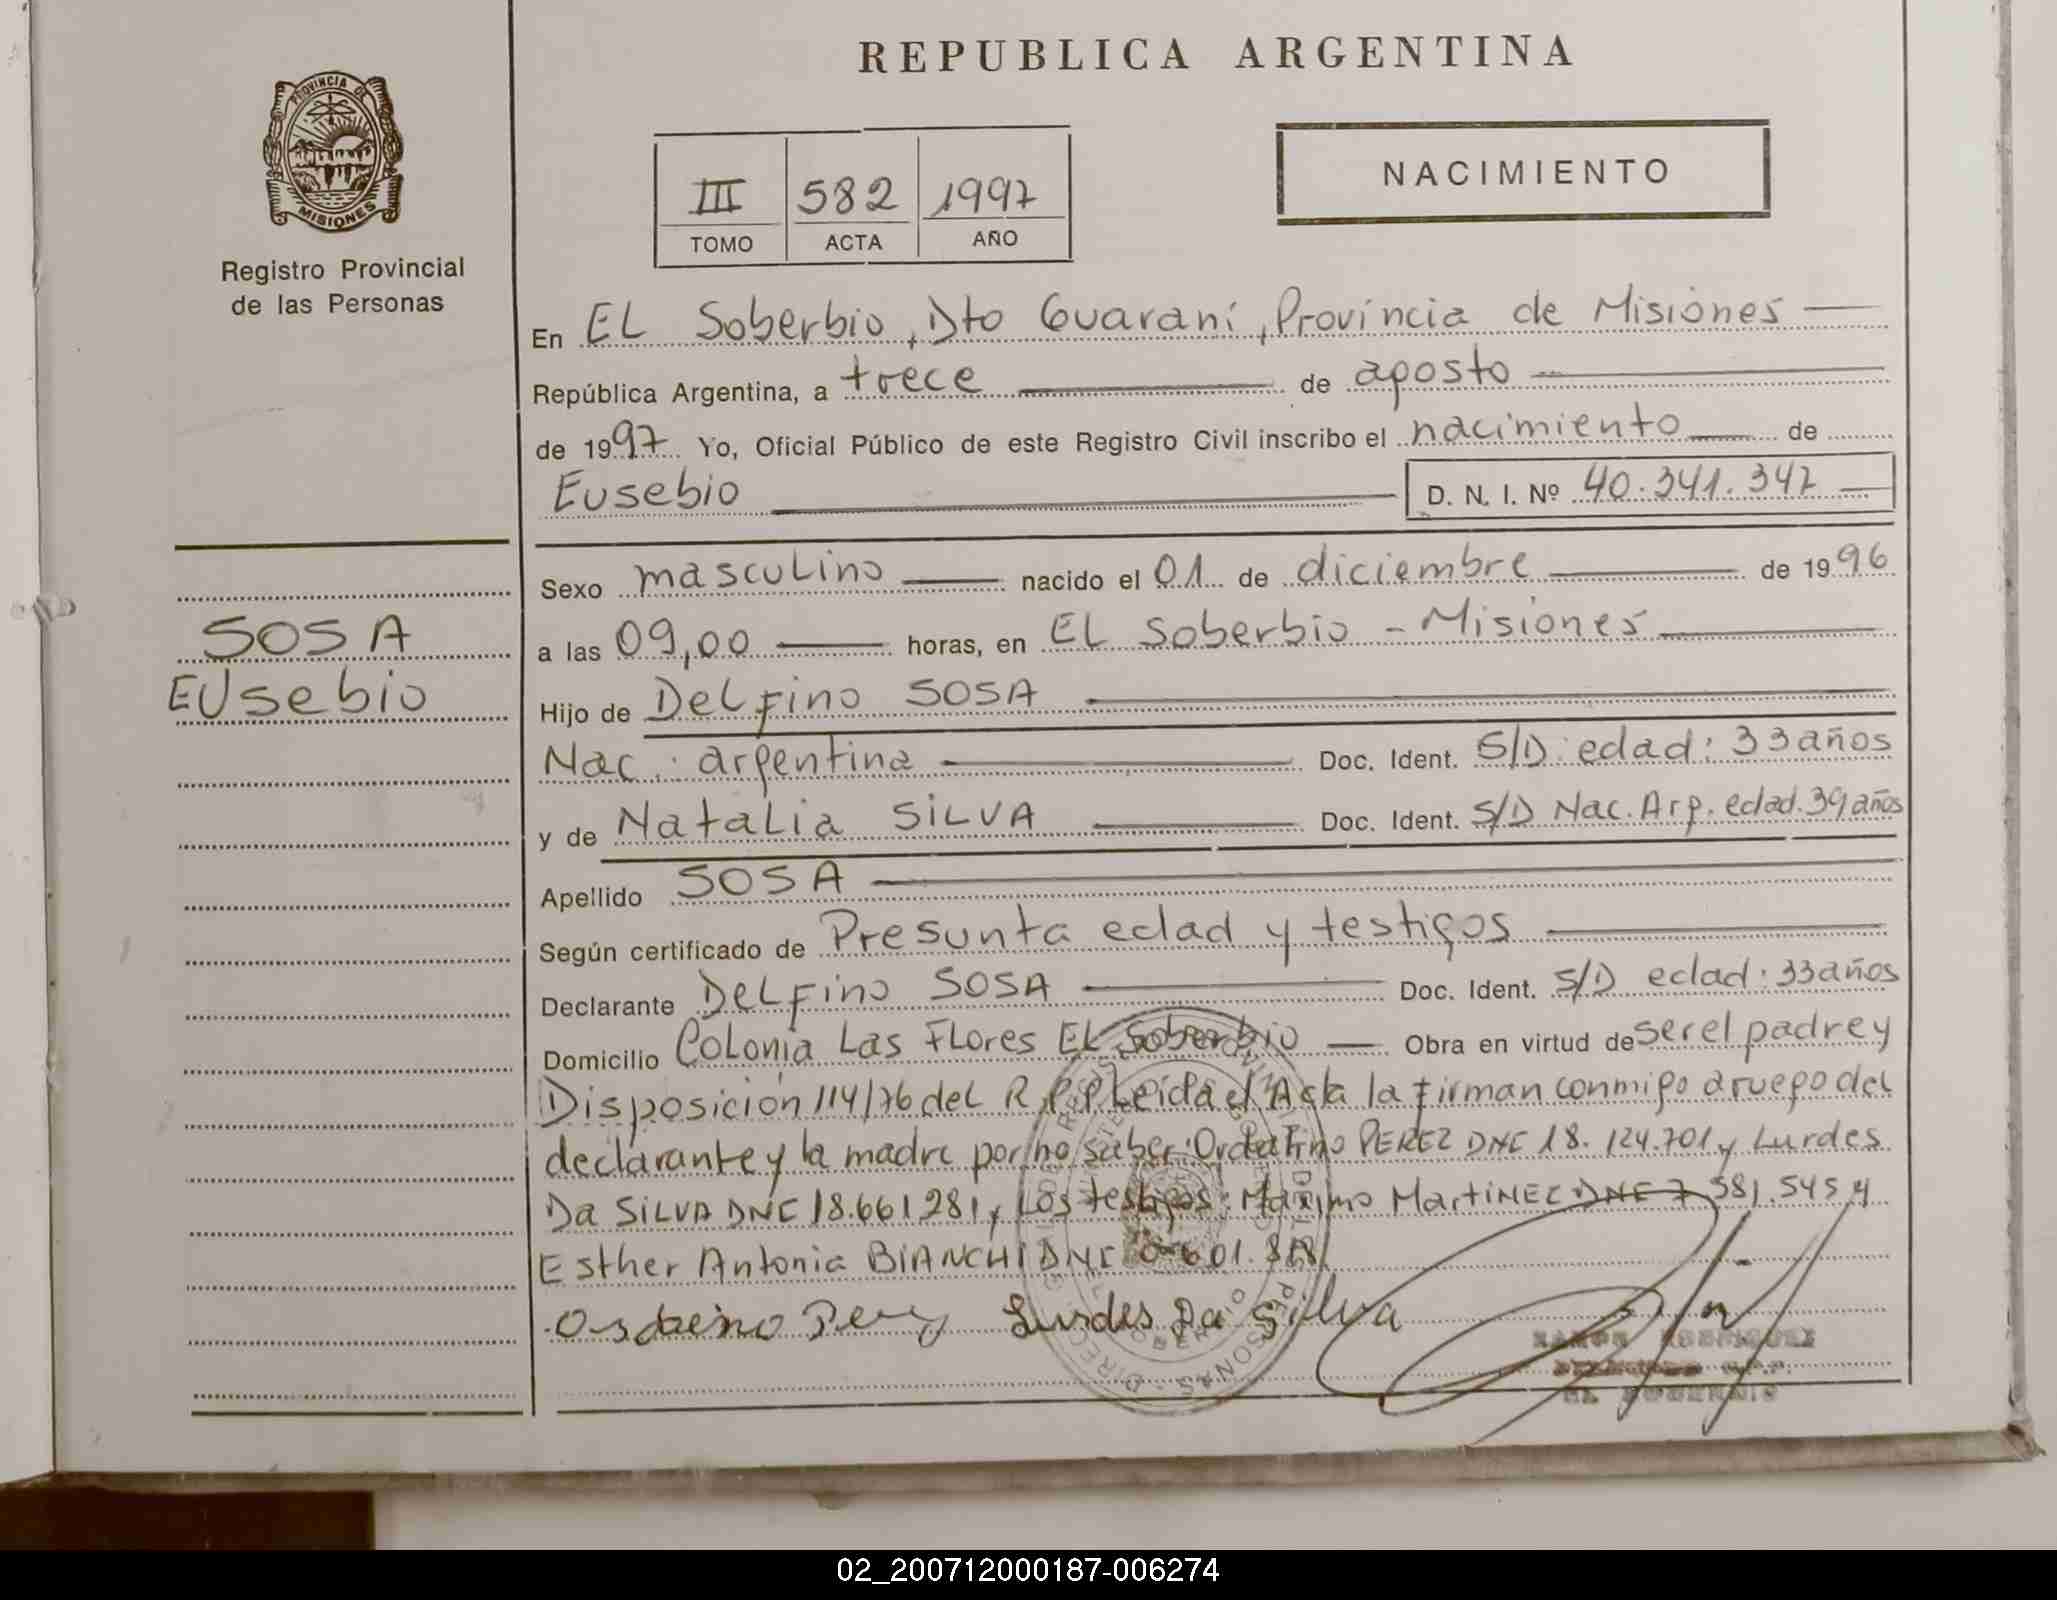 REPUBLICA ARGENTINA
PROVINCIA DE
MISIONES
Registro Provincial
de las Personas
NACIMIENTO
III 582 1997
TOMO ACTA AÑO
En EL Soberbio, Dto Guaraní, Provincia de Misiones
República Argentina, a trece de agosto
de 1997 Yo, Oficial Público de este Registro Civil inscribo el nacimiento de
Eusebio D. N. I. Nº 40.341.347
Sexo masculino nacido el 01 de diciembre de 1996
SOSA
Eusebio
a las 09,00 horas, en EL Soberbio - Misiones
Hijo de Delfino SOSA
Nac. argentina Doc. Ident. S/D edad: 33 años
y de Natalia SILVA Doc. Ident. S/D Nac. Arg. edad. 39 años
Apellido SOSA
Según certificado de Presunta edad y testigos
Declarante Delfino SOSA Doc. Ident. S/D edad: 33 años
Domicilio Colonia Las Flores El Soberbio Obra en virtud de ser el padre y
Disposición 114/76 del R.P.P Leida el Acta la firman conmigo a ruego del
declarante y la madre por no saber: PEREZ DNI 18.124.701 y Lurdes
Da SILVA DNI 18.661.281, Los testigos: Maximo MartiNEZ DNI 7.581.545 y
Esther Antonia BIANCHI DNI
Lurdes Da Silva
EL SOBERBIO
02_200712000187-006274